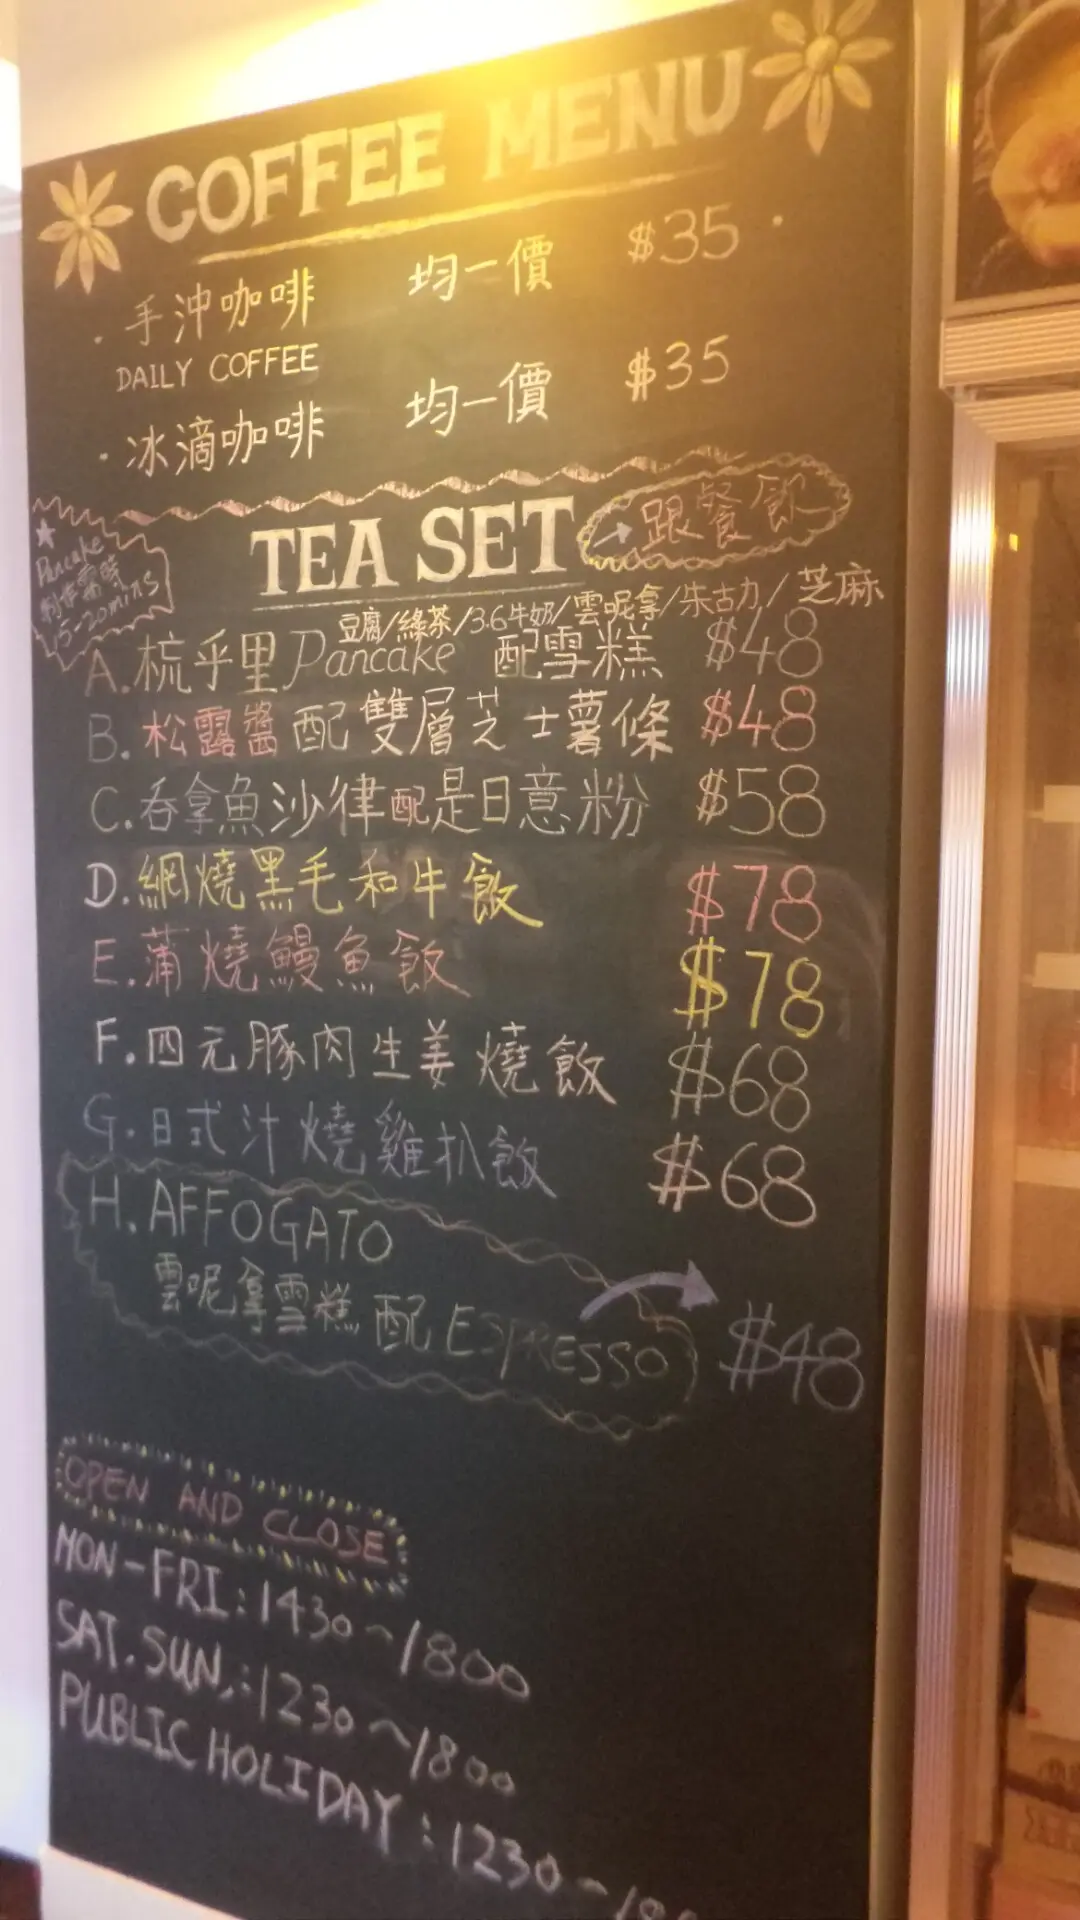 COFFEE MENU
· 手沖咖啡 均一價 $35
DAILY COFFEE
· 冰滴咖啡 均一價 $35
TEA SET
跟餐飲
Pancake
制作需時
15-20mins
豆腐/綠茶/3.6牛奶/雲呢拿/朱古力/芝麻
A. 梳乎里Pancake 配雪糕 $48
B. 松露醬配雙層芝士薯條 $48
C. 吞拿魚沙律配是日意粉 $58
D. 網燒黑毛和牛飯 $78
E. 蒲燒鰻魚飯 $78
F. 四元豚肉生姜燒飯 $68
G. 日式汁燒雞扒飯 $68
H. AFFOGATO
雲呢拿雪糕配 ESPRESSO $48
OPEN AND CLOSE
MON-FRI: 1430~1800
SAT. SUN,: 1230~1800
PUBLIC HOLIDAY: 1230~